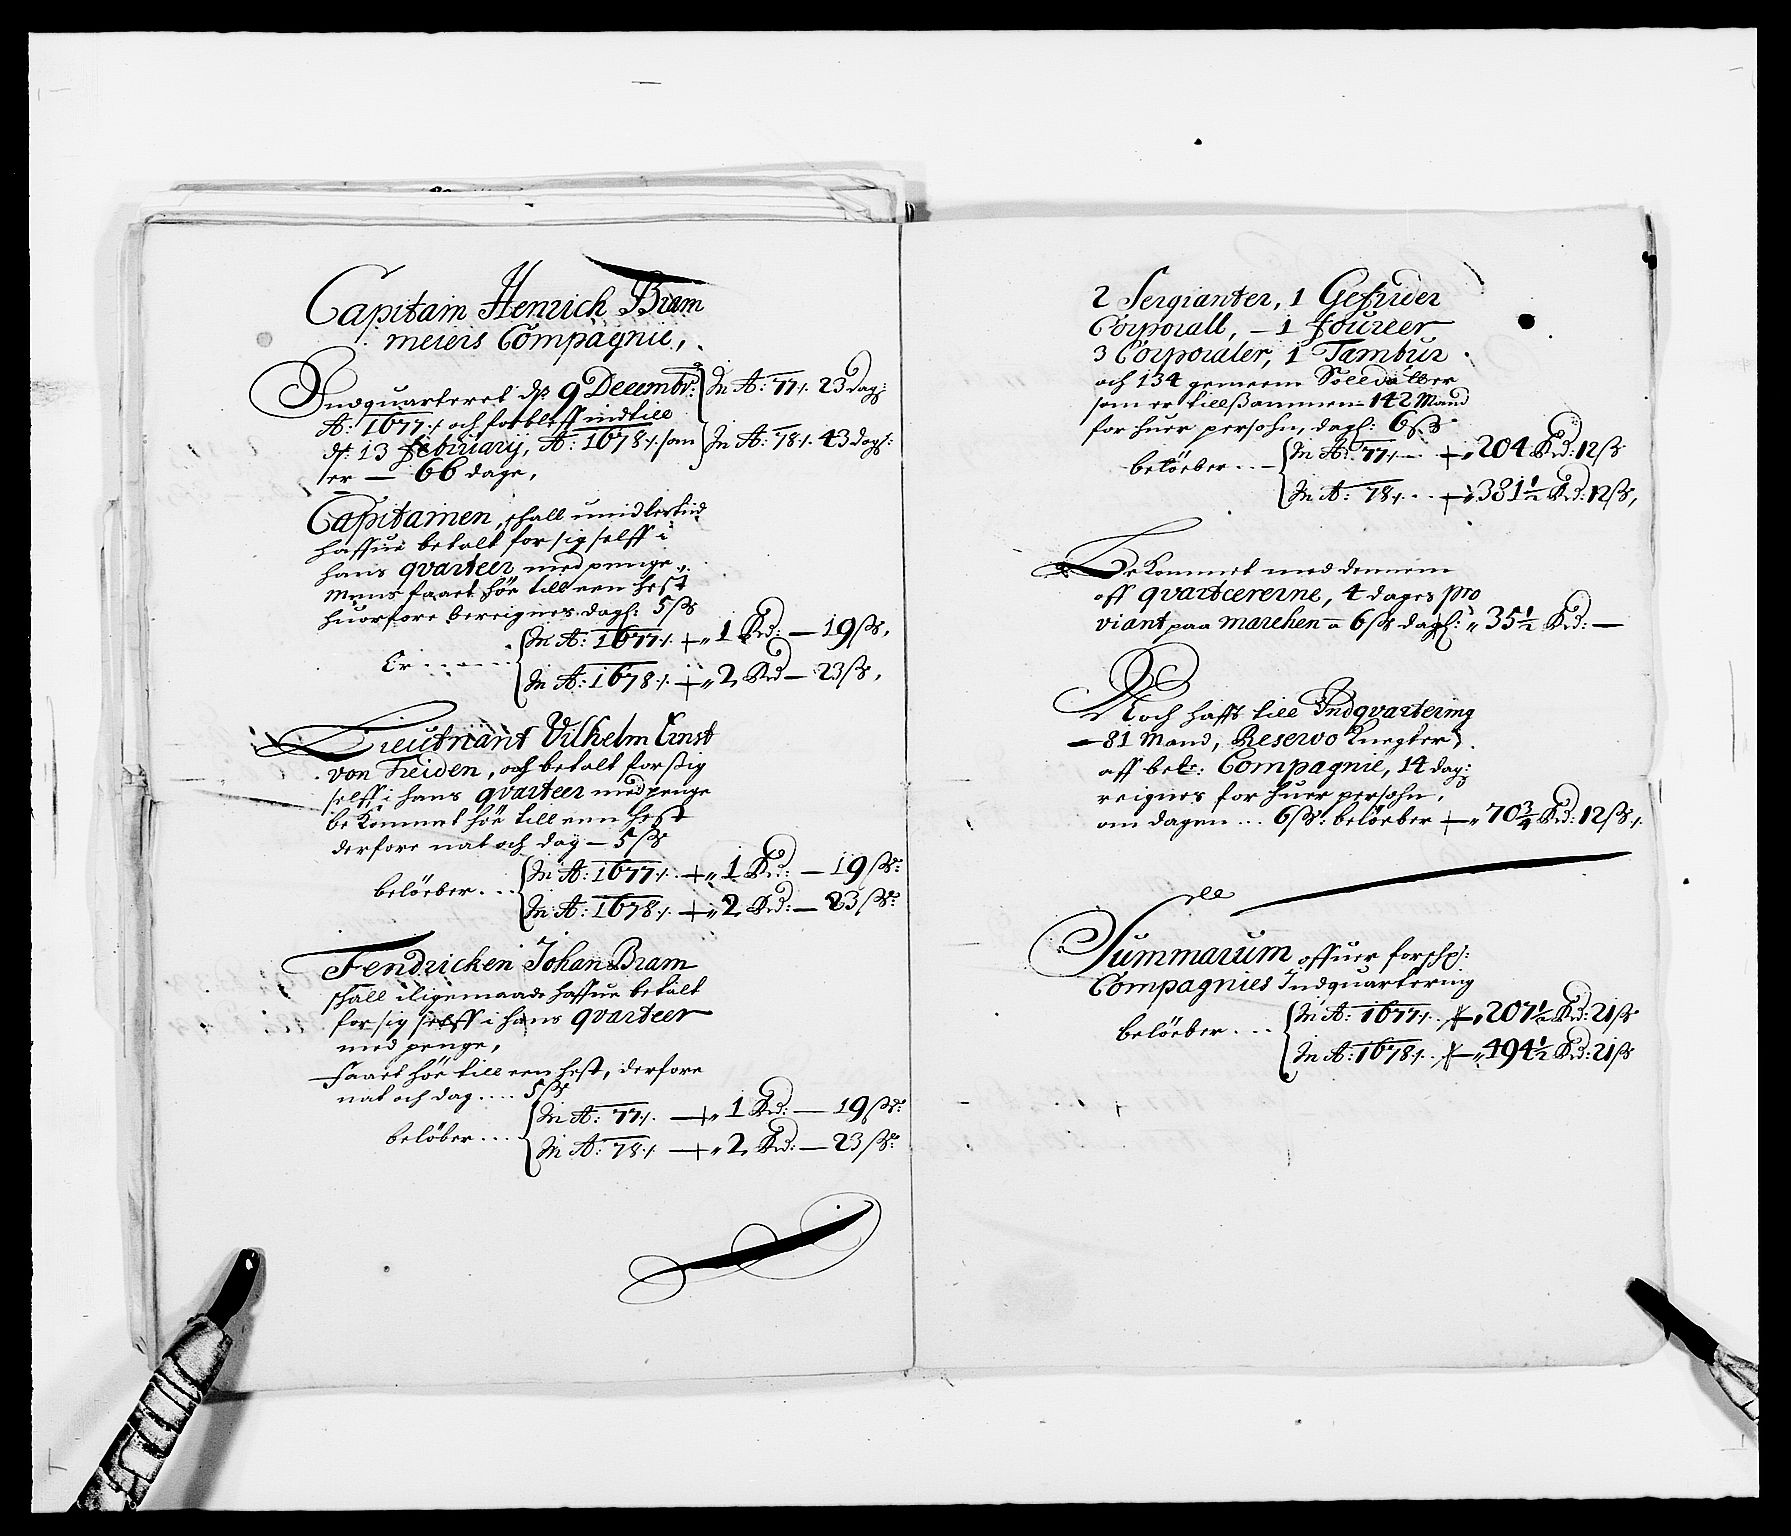 Capitain Henrich Bram
meiers Compagnie,
Indquarteret dẞ: 9 Decembr: In A: 77/. 23 dag:
A: 1677/. och forbleff indtill
dẞ: 13 Februarij, A: 1678/. som In A: 78/. 43 dage:
er — 66 dage,
Capitainen, shall imidlertid
haffue betalt for sig selff i
hans qvarteer med penge,
Mens faaet höe till een hest
huorfore bereignes dagl: 5 ẞ
Er In A: 1677/. 1 Rd: — 19 ẞ,
In A: 1678/. 2 Rd — 23 ẞ,
Lieutnant Vilhelm Ernst
von Heiden, och betalt for sig
selff i hans qvarteer med penge
bekommet höe till een hest
derfore nat och dag — 5 ẞ
belöeber In A: 1677/. 1 Rd: — 19 ẞ:
In A: 1678/. 2 Rd: — 23 ẞ:
Fendricken Johan Bram
shall iligemaade haffue betalt
for sig selff i hans qvarteer
med penge,
faaet höe till een hest, derfore
nat och dag .... 5 ẞ
belöber... In A: 77/. 1 Rd: — 19 ẞ:
In A: 78/. 2 Rd: — 23 ẞ:
2 Sergianter, 1 Gefrider
Corporall, — 1 Foureer
3 Corporaler, 1 Tambur
och 134 gemeene Solldatter
som er tillsammen 142 Mand
for huer persohn, dagl: 6 ẞ
belöeber... In A: 77/. 204 Rd: 12 ẞ
In A: 78/. 381½ Rd: 12 ẞ,
Bekommet med dennem
aff qvarteererne, 4 dages Pro
viant paa marchen a 6 ẞ dagl: 35½ Rd: —
Noch hafft till Indqvartering
— 81 Mand, Reservo Knegter
aff bete: Compagnie, 14 dag:
reignes for huer persohn,
om dagen ... 6 ẞ: belöeber 70¾ Rd: 12 ẞ/.
Summarum offuer forschr:
Compagnies Indquartering
belöeber... In A: 1677/. 207½ Rd: 21 ẞ
In A: 1678/. 494½ Rd: 21 ẞ